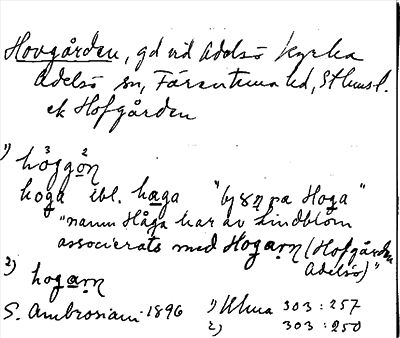 Hovgården, gd vid Adelsö kyrka
Adelsö sn, Färentuna hd, Sthmsl.
ek Hofgården
1) höggön
hoga ibl. hæga "by8n pa Hoga"
"namn Håga har av Lindblom
associerats med Hogarn (Hofgården
Adelsö)"
2) hogarn
S. Ambrosiani 1896 1) Ulma 303:257
2) 303:250